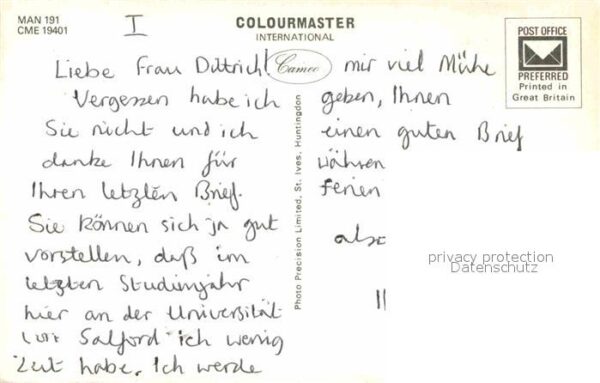 MAN 191
CME 19401
I
COLOURMASTER
INTERNATIONAL
POST OFFICE
PREFERRED
Printed in
Great Britain
Cameo
Photo Precision Limited, St. Ives, Huntingdon
Liebe Frau Dittrich!
Vergessen habe ich
Sie nicht und ich
danke Ihnen für
Ihren letzten Brief.
Sie können sich ja gut
vorstellen, daß im
letzten Studienjahr
hier an der Universität
von Salford ich wenig
Zeit habe. Ich werde
mir viel Mühe
geben, Ihnen
einen guten Brief
währen
Ferien
also
privacy protection
Datenschutz